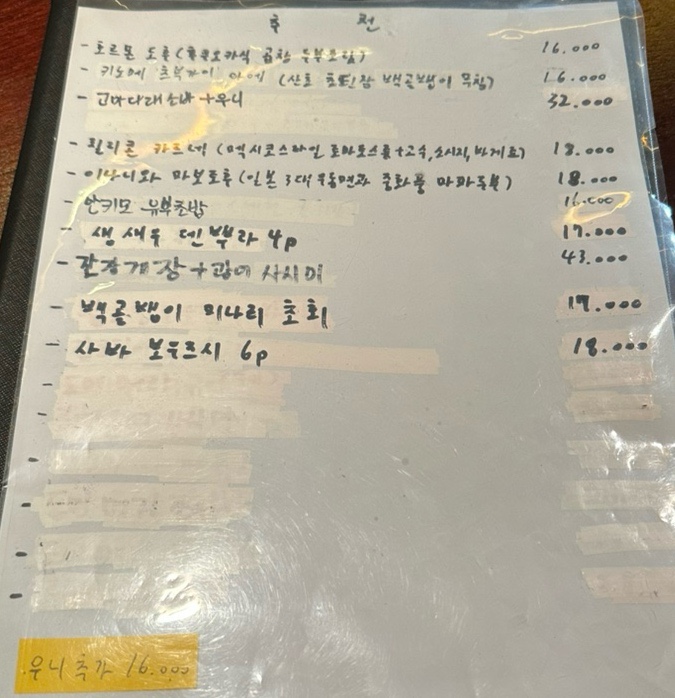 추 천
- 호르몬 도후 (후쿠오카식 곱창 두부조림) 16.000
- 키노메 초부카이 아에 (산초 초된장 백골뱅이 무침) 16.000
- 고마다래소바+우니 32.000
- 칠리콘 카르네 (멕시코스타일 토마토스튜+고수,소시지,바게트) 18.000
- 이나니와 마보도후 (일본 3대 우동면과 중화풍 마파두부) 18.000
- 안키모 유부초밥 16.000
- 생새우 덴뿌라 4p 17.000
- 간장게장+광어 사시미 43.000
- 백골뱅이 미나리 초회 17.000
- 사바 보우즈시 6p 18.000
우니 추가 16.000